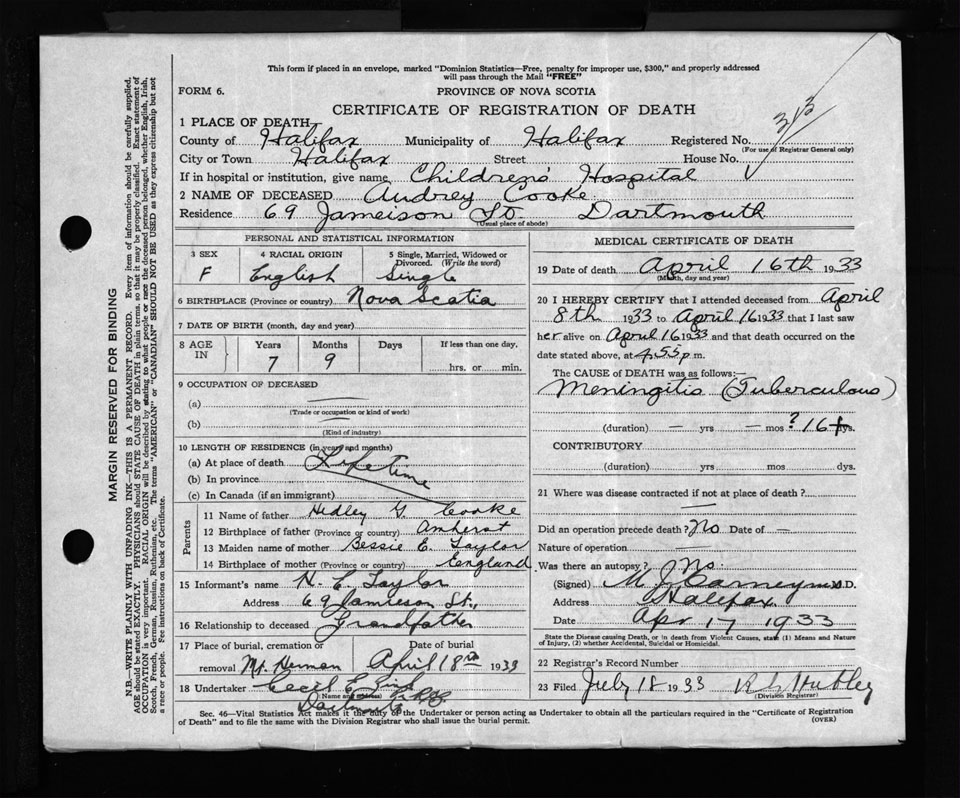 This form if placed in an envelope, marked "Dominion Statistics—Free, penalty for improper use, $300," and properly addressed
will pass through the Mail "FREE"
FORM 6. PROVINCE OF NOVA SCOTIA
CERTIFICATE OF REGISTRATION OF DEATH
313
1 PLACE OF DEATH
County of Halifax Municipality of Halifax Registered No.
(For use of Registrar General only)
City or Town Halifax Street House No.
If in hospital or institution, give name Childrens' Hospital
2 NAME OF DECEASED Audrey Cooke
Residence 69 Jameison St. Dartmouth
(Usual place of abode)
PERSONAL AND STATISTICAL INFORMATION
3 SEX 4 RACIAL ORIGIN 5 Single, Married, Widowed or
Divorced. (Write the word)
F English Single
6 BIRTHPLACE (Province or country) Nova Scotia
7 DATE OF BIRTH (month, day and year)
8 AGE IN Years Months Days If less than one day,
7 9 hrs. or min.
9 OCCUPATION OF DECEASED
(a)
(Trade or occupation or kind of work)
(b)
(Kind of industry)
10 LENGTH OF RESIDENCE (in years and months)
(a) At place of death Lifetime
(b) In province
(c) In Canada (if an immigrant)
Parents
11 Name of father Hedley G. Cooke
12 Birthplace of father (Province or country) Amherst
13 Maiden name of mother Bessie E. Taylor
14 Birthplace of mother (Province or country) England
15 Informant's name H. E Taylor
Address 69 Jamieson St.,
16 Relationship to deceased Grandfather
17 Place of burial, cremation or Date of burial
removal Mt. Herman April 18th 1933
18 Undertaker Cecil E.
(Name and address)
Dartmouth
MEDICAL CERTIFICATE OF DEATH
19 Date of death April 16th 1933
(Month, day and year)
20 I HEREBY CERTIFY that I attended deceased from April
8th 1933 to April 16 1933 that I last saw
her alive on April 16 1933 and that death occurred on the
date stated above, at 4.55 p m.
The CAUSE OF DEATH was as follows:—
Meningitis (Tuberculous)
(duration) — yrs — mos ? 16+ dys.
CONTRIBUTORY
(duration) yrs mos dys.
21 Where was disease contracted if not at place of death?
Did an operation precede death? No Date of —
Nature of operation —
Was there an autopsy? No.
(Signed) M J Carney M.D.
Address Halifax
Date Apr 17 1933
State the Disease causing Death, or in death from Violent Causes, state (1) Means and Nature
of Injury, (2) whether Accidental, Suicidal or Homicidal.
22 Registrar's Record Number
23 Filed July 18 1933 Hubley
(Division Registrar)
Sec. 46—Vital Statistics Act makes it the duty of the Undertaker or person acting as Undertaker to obtain all the particulars required in the "Certificate of Registration
of Death" and to file the same with the Division Registrar who shall issue the burial permit. (OVER)
MARGIN RESERVED FOR BINDING
N.B.—WRITE PLAINLY WITH UNFADING INK—THIS IS A PERMANENT RECORD. Every item of information should be carefully supplied.
AGE should be stated EXACTLY. PHYSICIANS should STATE CAUSE OF DEATH in plain terms, so that it may be properly classified. Exact statement of
OCCUPATION is very important. RACIAL ORIGIN will be described by stating to what people or race the deceased person belonged, whether English, Irish,
Scotch, French, German, Russian, Ruthenian, etc. The terms "AMERICAN" or "CANADIAN" SHOULD NOT BE USED as they express citizenship but not
a race or people. See instructions on back of Certificate.